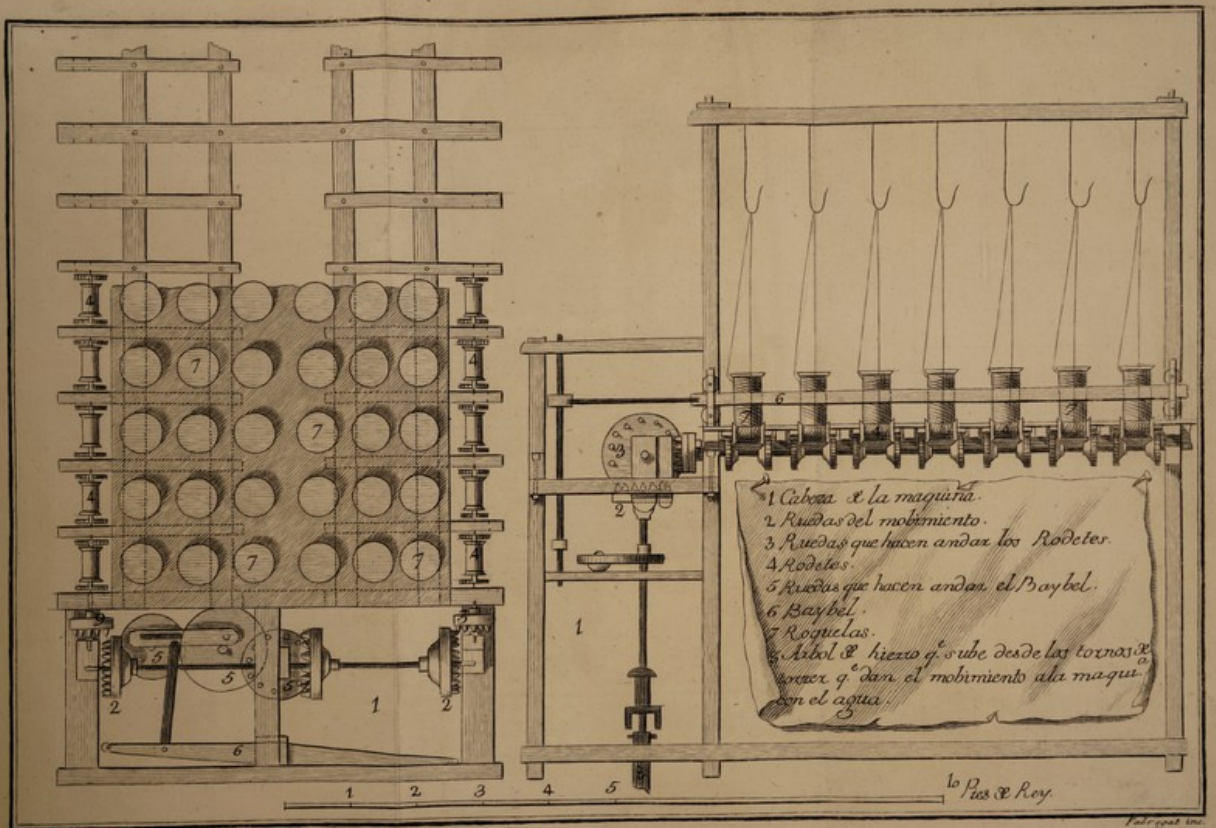 4
7
4
7
4
7
7
4
9
5
5
5
2
2
1
6
3
2
1
6
7
7
1 Cabeza de la maquina.
2 Ruedas del mobimiento.
3 Ruedas que hacen andar los Rodetes.
4 Rodetes.
5 Ruedas que hacen andar el Baybel.
6 Baybel.
7 Roquelas.
8 Arbol de hierro q.e sube desde los tornos de
torzer q.e dan el mobimiento ala maqui
a
con el agua.
1 2 3 4 5
10 Pies de Rey.
Fabregat inc.